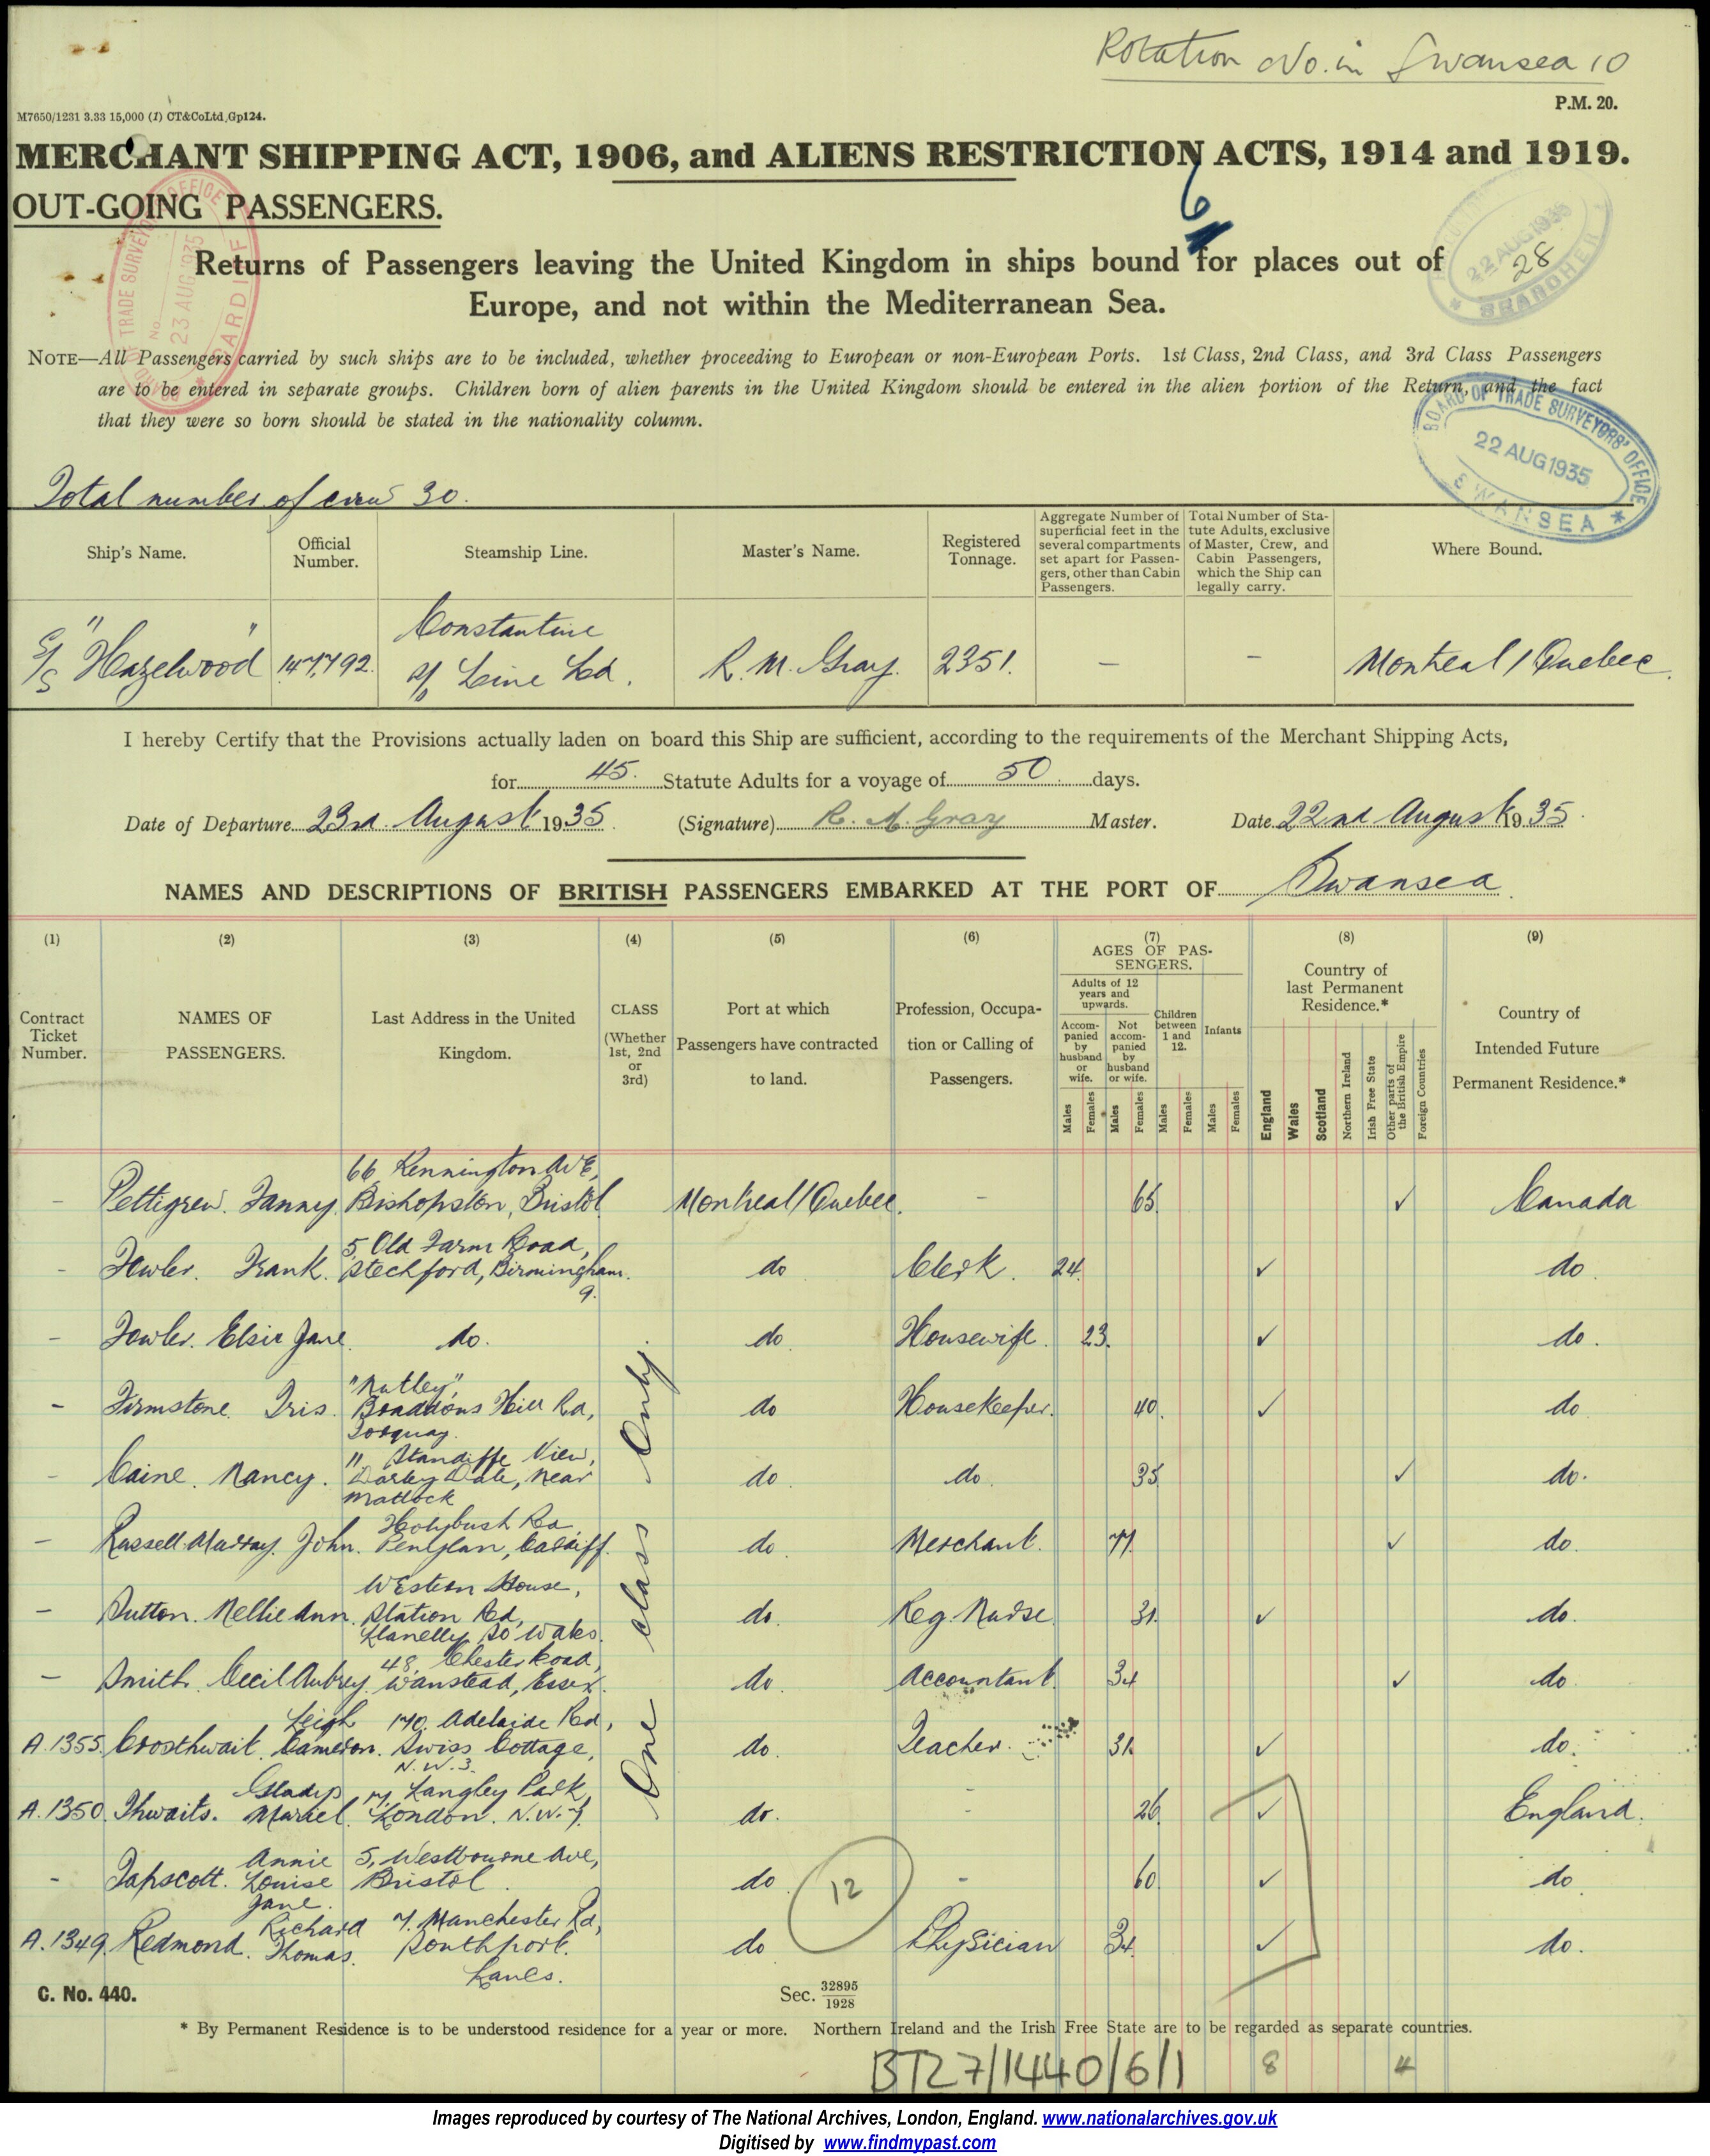 Rotation No. in Swansea 10
P.M. 20.
M7650/1231 3.33 15,000 (1) CT&CoLtd,Gp124.
MERCHANT SHIPPING ACT, 1906, and ALIENS RESTRICTION ACTS, 1914 and 1919.
OUT-GOING PASSENGERS.
6
Returns of Passengers leaving the United Kingdom in ships bound for places out of
Europe, and not within the Mediterranean Sea.
23 AUG 1935
CARDIFF
22 AUG 1935
28
SEARCHER
NOTE—All Passengers carried by such ships are to be included, whether proceeding to European or non-European Ports. 1st Class, 2nd Class, and 3rd Class Passengers
are to be entered in separate groups. Children born of alien parents in the United Kingdom should be entered in the alien portion of the Return, and the fact
that they were so born should be stated in the nationality column.
BOARD OF TRADE SURVEYORS' OFFICE
22 AUG 1935
SWANSEA
Total number of crew 30.
Ship's Name. Official Number. Steamship Line. Master's Name. Registered Tonnage. Aggregate Number of superficial feet in the several compartments set apart for Passengers, other than Cabin Passengers. Total Number of Statute Adults, exclusive of Master, Crew, and Cabin Passengers, which the Ship can legally carry. Where Bound.
S/S "Hazelwood" 147792. Constantine S/S Line Ltd. R. M. Gray. 2351. — — Montreal/Quebec.
I hereby Certify that the Provisions actually laden on board this Ship are sufficient, according to the requirements of the Merchant Shipping Acts,
for 45. Statute Adults for a voyage of 50 days.
Date of Departure 23rd August 1935. (Signature) R. M. Gray Master. Date 22nd August 1935.
NAMES AND DESCRIPTIONS OF BRITISH PASSENGERS EMBARKED AT THE PORT OF Swansea.
(1) (2) (3) (4) (5) (6) (7) (8) (9)
Contract Ticket Number. NAMES OF PASSENGERS. Last Address in the United Kingdom. CLASS (Whether 1st, 2nd or 3rd) Port at which Passengers have contracted to land. Profession, Occupation or Calling of Passengers. AGES OF PASSENGERS. Country of last Permanent Residence.* Country of Intended Future Permanent Residence.*
Adults of 12 years and upwards. Children between 1 and 12. Infants
Accompanied by husband or wife. Not accompanied by husband or wife.
Males Females Males Females Males Females Males Females England Wales Scotland Northern Ireland Irish Free State Other parts of the British Empire Foreign Countries
One Class Only.
- Pettigrew. Fanny. 66 Kennington Ave, Bishopston, Bristol. Montreal/Quebec. - 65 ✓ Canada
- Fowler. Frank. 5, Old Farm Road, Stechford, Birmingham. 9. do Clerk. 24. ✓ do.
- Fowler. Elsie Jane. do. do. Housewife. 23. ✓ do.
- Firmstone. Iris. "Nutley", Braddons Hill Rd, Torquay. do Housekeeper. 40. ✓ do
- Caine. Nancy. 11, Standiffe View, Darley Dale, near Matlock do do. 35 ✓ do.
- Russell-Murray. John. Holybush Rd Penylan, Cardiff. do. Merchant. 77. ✓ do.
- Sutton. Nellie Ann. Western House, Station Rd, Llanelly, So' Wales. do. Reg. Nurse 31. ✓ do.
- Smith. Cecil Aubrey. 48, Chester Road, Wanstead, Essex. do. Accountant. 34 ✓ do
A.1355. Crosthwait. Leigh Cameron. 170, Adelaide Rd, Swiss Cottage, N.W.3. do. Teacher. 31. ✓ do.
A.1350. Thwaits. Gladys Muriel. 7, Langley Park, London. N.W.7. do. - 26. ✓ England.
- Tapscott. Annie Louise Jane. 5, Westbourne Ave, Bristol. do. - 60. ✓ do.
A.1349. Redmond. Richard Thomas. 7, Manchester Rd, Southport. Lancs. do Physician 34. ✓ do.
12
C. No. 440.
Sec. 32895/1928
* By Permanent Residence is to be understood residence for a year or more. Northern Ireland and the Irish Free State are to be regarded as separate countries.
BT27/1440/6/1
8 4
Images reproduced by courtesy of The National Archives, London, England. www.nationalarchives.gov.uk
Digitised by www.findmypast.com